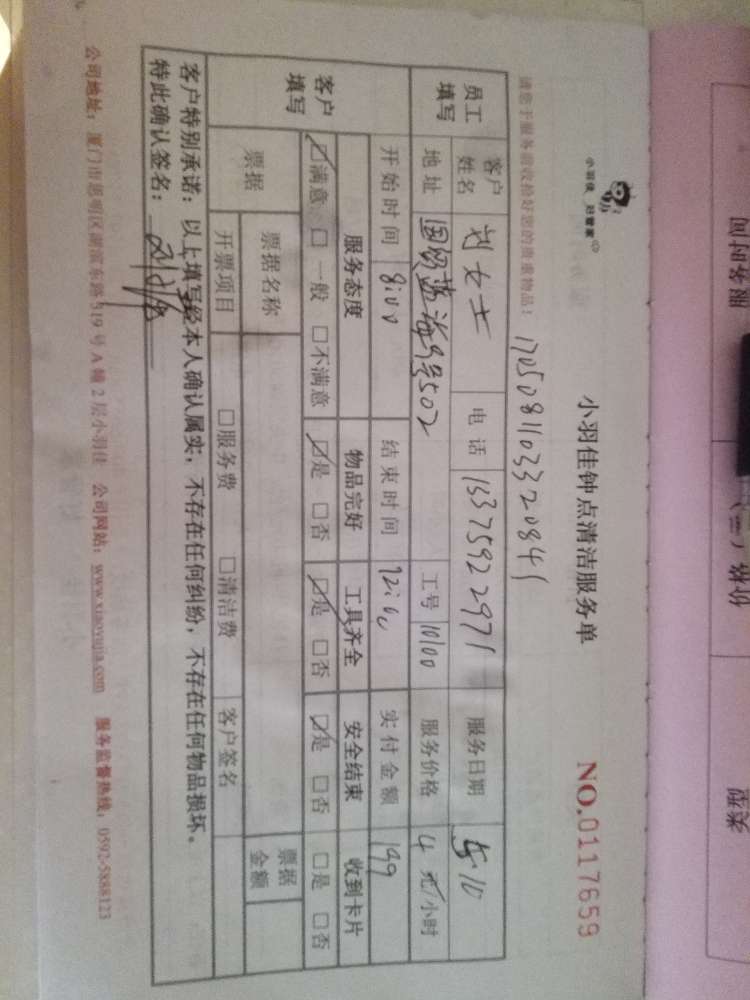 小羽佳 好管家
小羽佳钟点清洁服务单
NO.0117659
请您于服务前收捡好您的贵重物品!
17050811033320841
员工填写
客户姓名 刘女士 电话 15375922971 服务日期 5.10
地址 国贸蓝海9号502 工号 10100 服务价格 4 元/小时
开始时间 8:00 结束时间 12:00 实付金额 199
客户填写
服务态度 物品完好 工具齐全 安全结束 收到卡片
☑满意 □一般 □不满意 ☑是 □否 ☑是 □否 ☑是 □否 □是 □否
票据 票据名称 票据金额
开票项目 □服务费 □清洁费 客户签名
客户特别承诺:以上填写经本人确认属实,不存在任何纠纷,不存在任何物品损坏。
特此确认签名:
公司地址:厦门市思明区湖滨东路319号A幢2层小羽佳 公司网站:www.xiaoyujia.com 服务监督热线:0592-5888123
服务时间
价格(元)